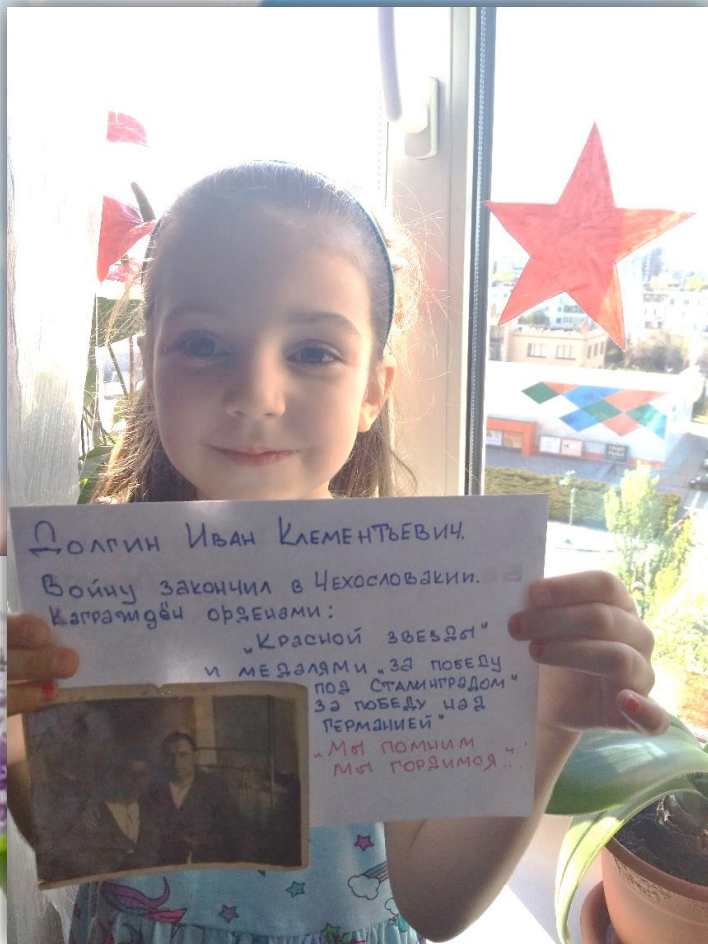 Долгин Иван Клементьевич.
Войну закончил в Чехословакии.
Награждён орденами:
„Красной звезды"
и медалями „За победу
под Сталинградом"
За победу над
Германией"
„Мы помним
мы гордимся"..